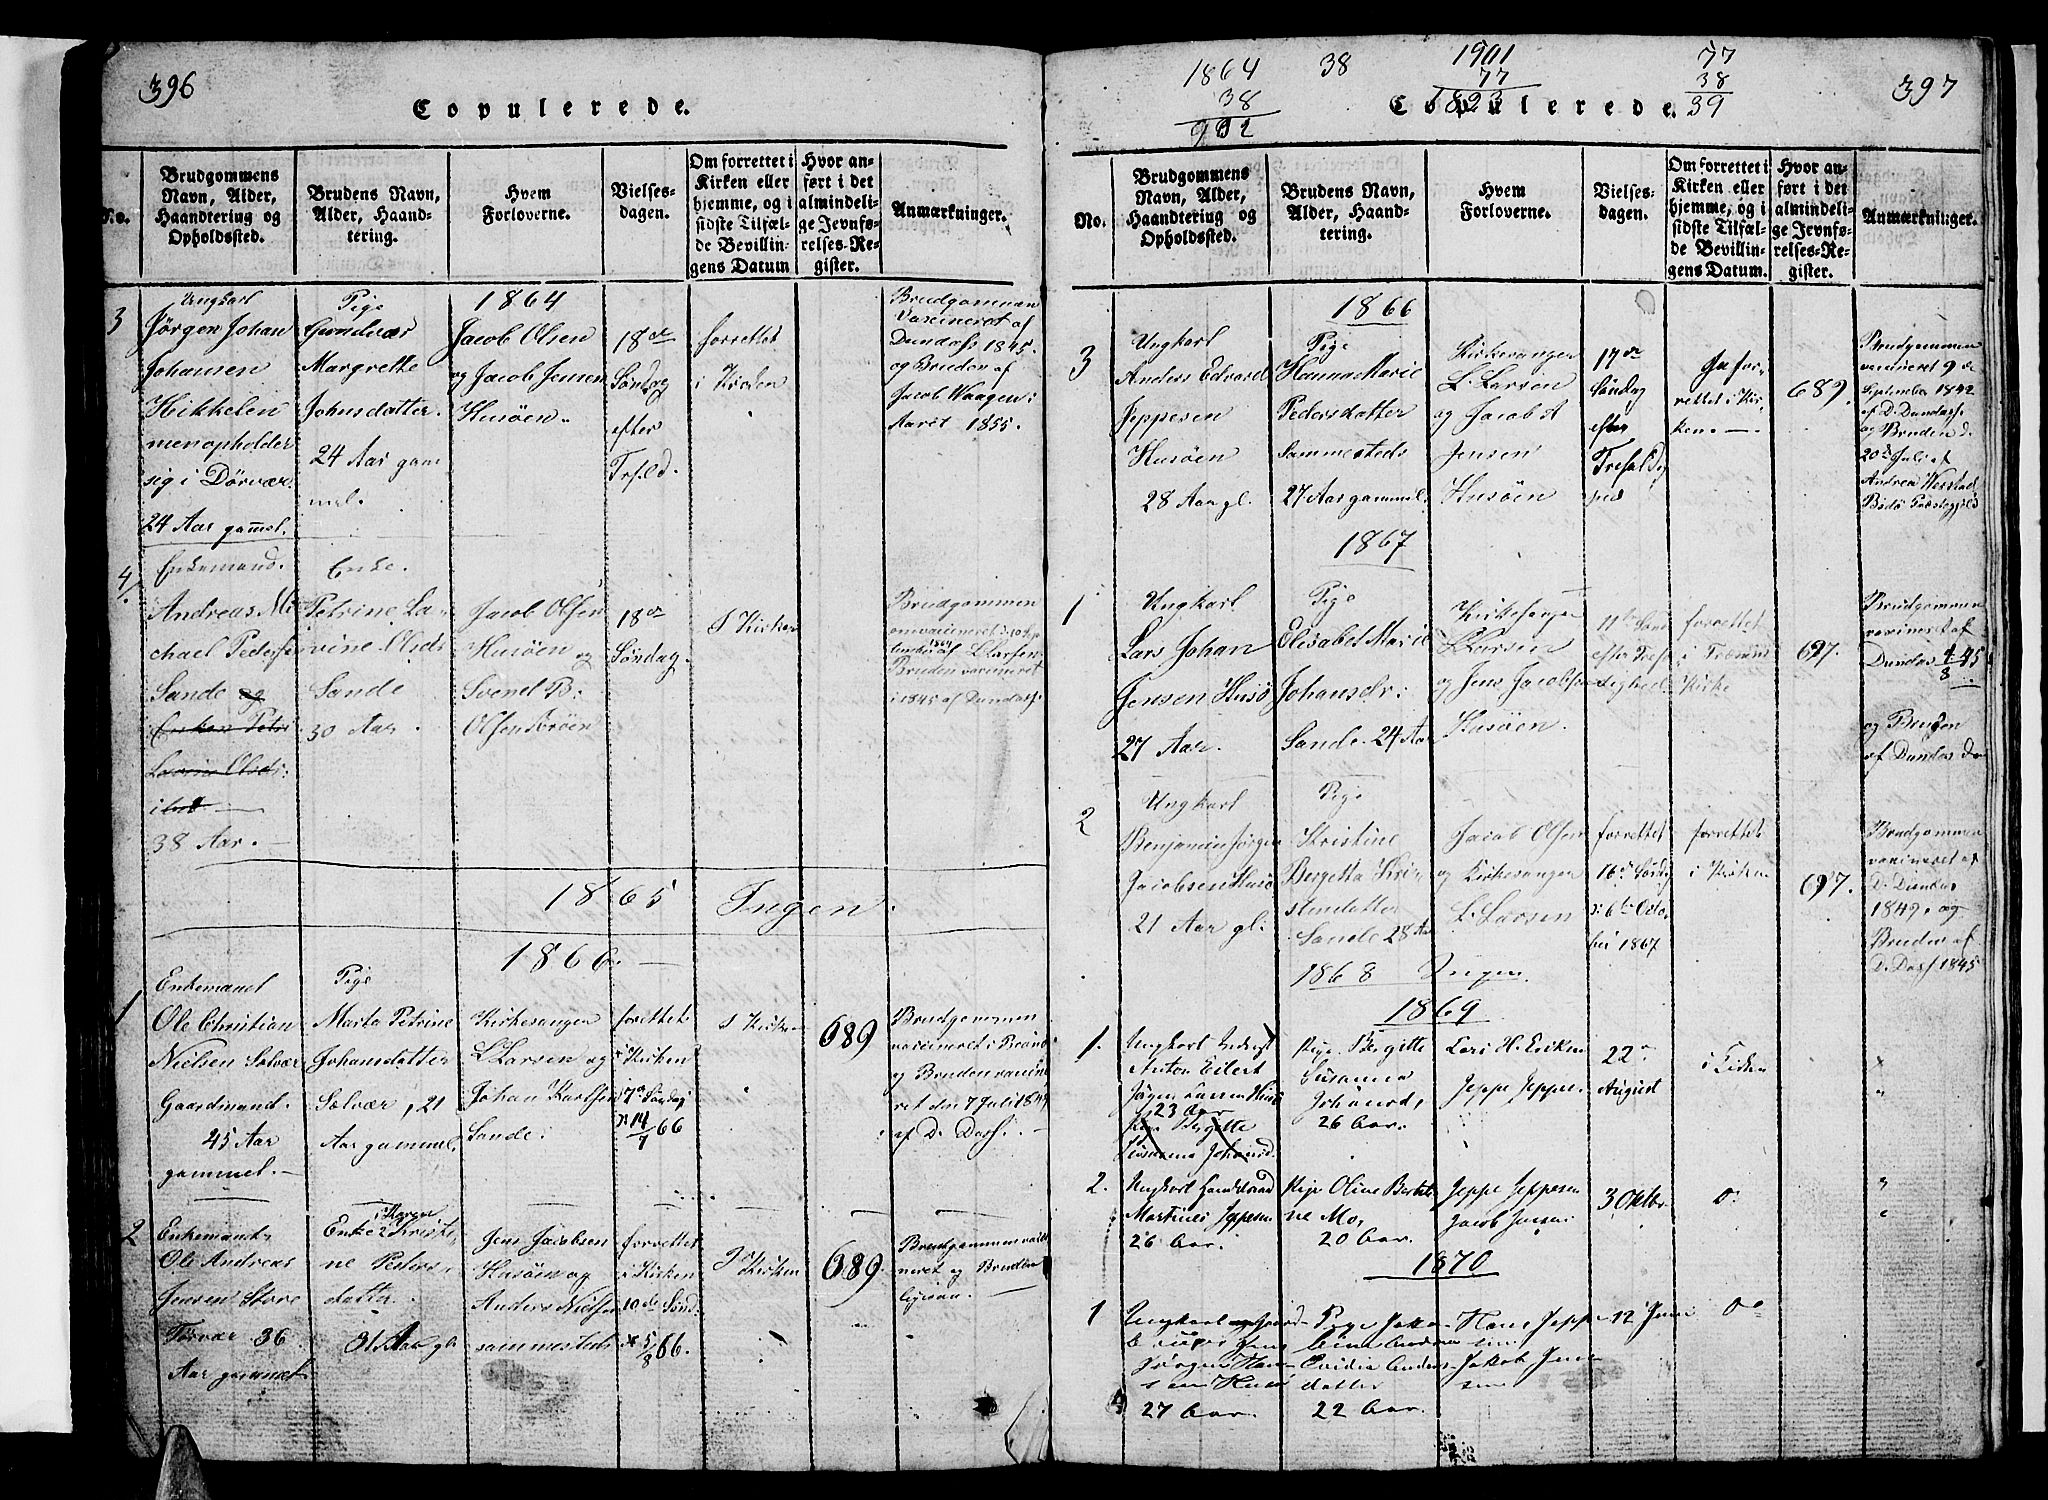 396
Copulerede.
No.
Brudgommens
Navn, Alder,
Haandtering og
Opholdssted.
Brudens Navn,
Alder, Haand-
tering.
Hvem
Forloverne.
Vielses-
dagen.
Om forrettet i
Kirken eller
hjemme, og i
sidste Tilfæl-
de Bevillin-
gens Datum
Hvor an-
ført i det
almindeli-
ge Jevnfø-
relses-Re-
gister.
Anmærkninger.
1864
3
Ungkarl
Jørgen Johan
Johansen
Hikkelen
men opholder
sig i Dörvær
24 Aar gam̄el.
Pige
Gundvær
Margrethe
Johnsdatter.
24 Aar gam
mel.
Jacob Olsen
og Jacob Jensen
Husöen.
18de
Søndag
efter
Trfeld.
forrettet
i Kirken
Brudgommen
Vaxineret af
Dundass 1845.
og Bruden af
Jacob Waagen i
Aaret 1855.
4
Enkemand.
Andreas Mi
chael Peders
Sande og
Enken Petri
Lavine Olsdr:
ibd
38 Aar.
Enke.
Petrine La-
vine Olsdr
Sande
30 Aar.
Jacob Olsen
Husöen og
Svend P:
Olsen
18de
Søndag
I Kirken
Brudgommen
L Larsen
Bruden vaxineret
i 1845 af Dundass
1865 Ingen.
1866.
1
Enkemand
Ole Christian
Nielsen Selvær
Gaardmand.
45 Aar
gammel.
Pige
Marta Petrine
Johansdatter
Selvær, 21
Aar gammel.
Kirkesanger
L Larsen og
Johan Karlsen
Sande.
forrettet
i Kirken
7de Søndag
14/7 66
I Kirken
689
Brudgommen
vaxineret i
og Bruden vaxine
ret den 7 Juli 1849
af D. Dass.
2
Enkemand
Ole Andreas
Jensen Store
Torvær 36
Aar gammel
Karen
Enke Kristi-
ne Peders-
datter.
31 Aar gl
Jens Jacobsen
Husöen og
Anders Nielsen
sammesteds
forrettet
i Kirken
10de Sønd:
5/8 66.
I Kirken
689.
Brudgommen vaxi
neret og Bruden
ligesaa.
1864
38
902
38
1901
77
1823
77
38
39
397
Copulerede.
No.
Brudgommens
Navn, Alder,
Haandtering og
Opholdssted.
Brudens Navn,
Alder, Haand-
tering.
Hvem
Forloverne.
Vielses-
dagen.
Om forrettet i
Kirken eller
hjemme, og i
sidste Tilfæl-
de Bevillin-
gens Datum.
Hvor an-
ført i det
almindeli-
ge Jevnfø-
relses-Re-
gister.
Anmærkninger.
1866
3
Ungkarl
Anders Edvard
Jeppesen
Husöen
28 Aar gl.
Pige
Hanna Marie
Pedersdatter
Sammesteds
27 Aar gammel.
Kirkesanger
L. Larsen
og Jacob A
Jensen
Husöen
17de
Søndag
efter
Trefoldig
hed
for-
rettet i Kir-
ken.
689.
Brudgommen
vaxineret 9de
September 1842
af D. Dundass.
og Bruden d.
20de Juli af
Andrea
Bodö Præstegjeld
1867
1
Ungkarl
Lars Johan
Jensen Husö
27 Aar.
Pige
Elisabet Marie
Johansdr:
Sande. 24 Aar
Kirkesanger
L Larsen
og Jens Jacobsen
Husöen.
11te Sønd
efter Tref
oldighed
forrettet
i Trænens
Kirke
697.
Brudgommen
vaxineret af
Dundas 4/8 45
og Bruden
af Dundas Do
2
Ungkarl
Benjamin Jörgen
Jacobsen Husö
21 Aar gl:
Pige
Kristine
Bergetta Kri
stendatter
Sande 28 Aar
Jacob Olsen
og Kirkesanger
L. Larsen
forrettet
16de Søndag
6te Octo
ber 1867
forrettet
i Kirken
697.
Brudgommen
vaxineret af
D. Dundas
1849. og
Bruden af
D. Dass 1845
1868 Ingen
1869
1.
Ungkarl
Anton Eilert
Jørgen Larsen Husö
23 Aar
Pige Bergitte
Susanna Johansd.
Pige Bergitte
Susanna
Johansd,
26 Aar.
Lars H. Eriksen
Jeppe Jeppesen
22de
August
i Kirken
2.
Ungkarl
Martines Jeppesen
26 Aar.
Pige Oline Bertel
ne Mo,
20 Aar.
Jeppe Jeppesen
Jacob Jensen
3 Oktbr
Do
1870
1
Ungkarl
Jens
Jørgen Han-
sen Husö
27 Aar.
Pige Jako-
bine Andrea
Anders-
datter
22 Aar.
Hans Jeppe-
sen
Jakob Jen-
sen
12 Juni
Do